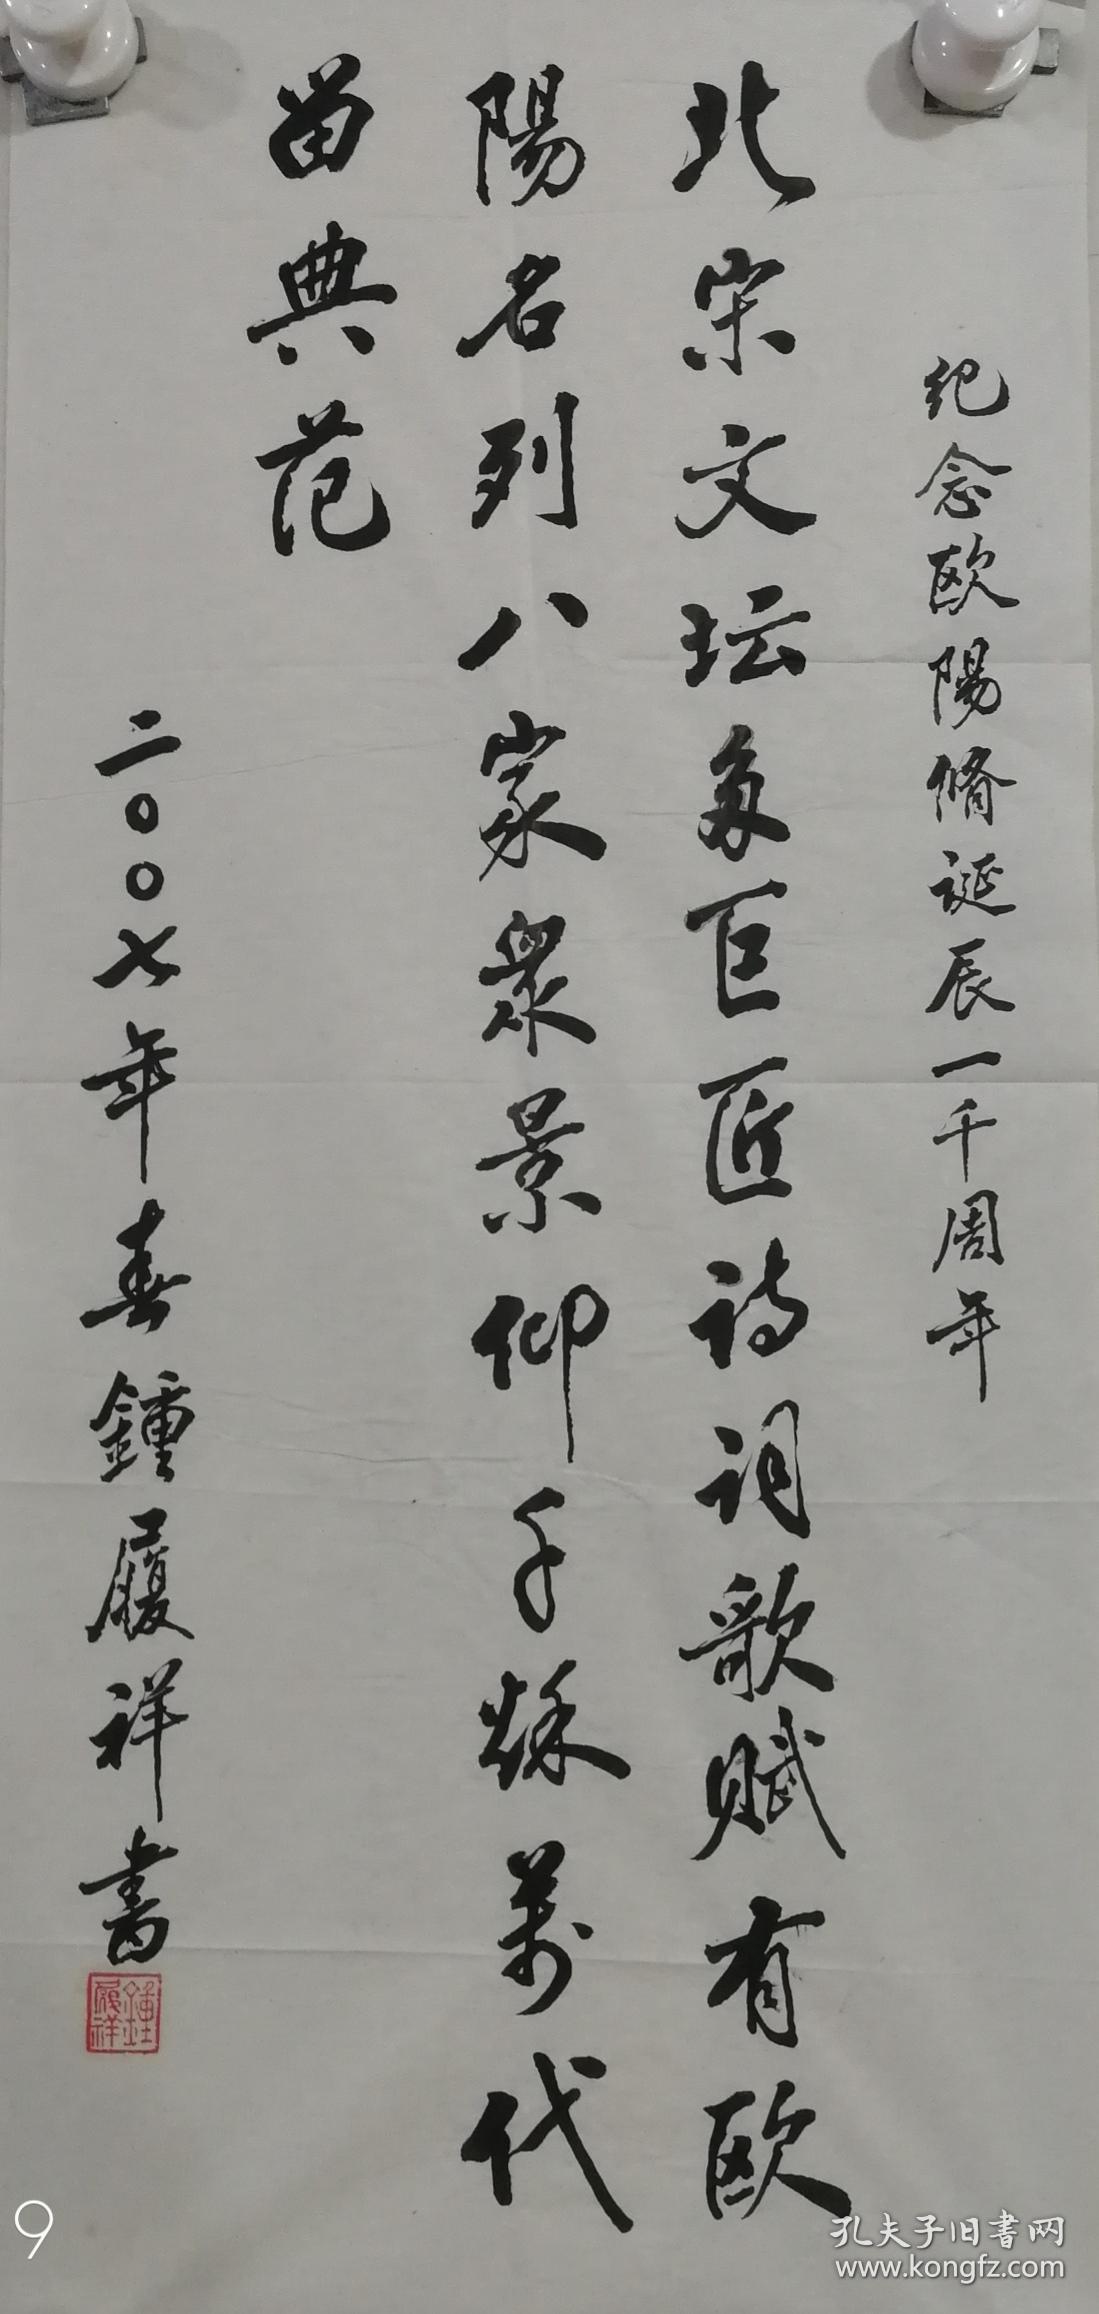 纪念欧陽脩诞辰一千周年
北宋文坛多巨匠诗词歌赋有欧
陽名列八家衆景仰千秌萬代
留典范
二〇〇七年春鍾履祥書
鍾履祥
9
孔夫子旧書网
www.kongfz.com